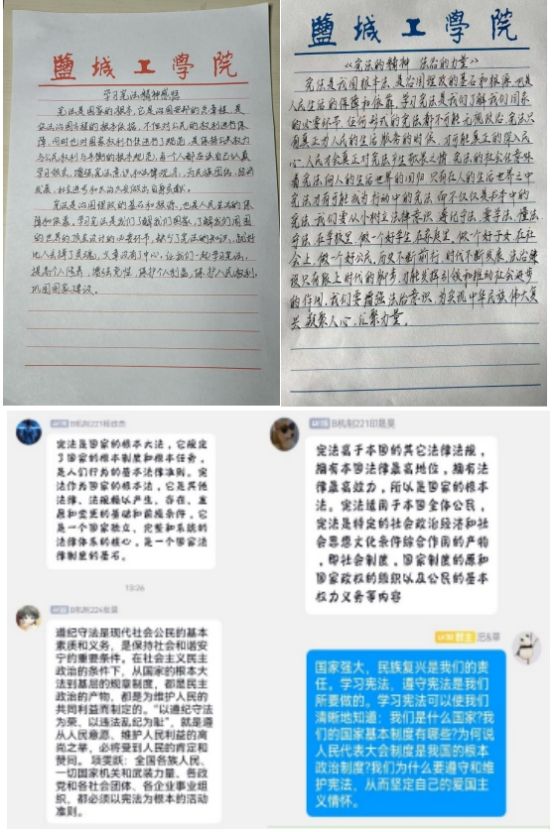 鹽城工學院
学习宪法精神感悟
宪法是国家的根本,它是治国安邦的总章程,是
依法治国方程的根本依据,不但对公民的权利进行保
障,同时也对国家权利行使进行了规范,是保障公民权力
与公民权利与平衡的根本规范,每个人都应该自己认真
学习落实,增强宪法意识和法律观点,为民族团结,经济
发展,社会进步和长治久安做出自身贡献。
宪法是治国理政的基石和根源,也是人民生活的保
障和依靠,学习宪法是我们了解我们国家,了解我们周围
的世界的顶层设计的必要环节,缺少了宪法的知识,就好
比人失掉了灵魂,文章没有了中心,让我们一起学习宪法,
提高个人修养,增强党性,保护个人利益,保护人民权利,
巩固国家建设。
鹽城工學院
《宪法的精神 法治的力量》
宪法是我国根本法,是治国理政的基石和根源,也是
人民生活的保障和依靠,学习宪法是我们了解我们国家
的必要环节,任何形式的宪法都不可能无限效应,宪法只
有真正为人民的生活服务的时候,才可能真正的深入民
心,人民才会真正对宪法产生敬畏之情,宪法的社会化意味
着宪法向人的生活世界的回归,只有在人的生活世界之中
宪法才有可能成为行动中的宪法,而不仅仅是书本中的
宪法,我们要从小树立法律意识,遵纪守法,要学法,懂法
守法,在学校里,做一个好学生,在家庭里,做一个好子女,在社
会上,做一个好公民,历史不断前行,时代不断发展,法治建
设只有跟上时代的脚步,才能发挥引领和推动社会进步
的作用,我们要增强法治意识,为实现中华民族伟大复
兴凝聚人心,汇聚力量。
B机制221
宪法是国家的根本大法,它规定
了国家的根本制度和根本任务,
是人们行为的基本法律准则。宪
法作为国家的根本法,它是其他
法律、法规赖以产生、存在、发
展和变更的基础和前提条件,它
是一个国家独立、完整和系统的
法律体系的核心,是一个国家法
律制度的基石。
13:26
B机制224
遵纪守法是现代社会公民的基本
素质和义务,是保持社会和谐安
宁的重要条件。在社会主义民主
政治的条件下,从国家的根本大
法到基层的规章制度,都是民主
政治的产物,都是为维护人民的
共同利益而制定的。"以遵纪守法
为荣、以违法乱纪为耻",就是遵
从人民意愿、维护人民利益的高
尚之举,必将受到人民的肯定和
赞同。 项雯跃:全国各族人民、
一切国家机关和武装力量、各政
党和各社会团体、各企业事业组
织,都必须以宪法为根本的活动
准则。
B机制221印是昊
宪法高于本国的其它法律法规,
拥有本国法律最高地位,拥有法
律最高效力,所以是国家的根本
法。宪法适用于本国全体公民,
宪法是特定的社会政治经济和社
会思想文化条件综合作用的产物
,即社会制度、国家制度的原和
国家政权的组织以及公民的基本
权力义务等内容
群主
国家强大,民族复兴是我们的责
任。学习宪法,遵守宪法是我们
所要做的。学习宪法可以使我们
清晰地知道:我们是什么国家?我
们的国家基本制度有哪些?为何说
人民代表大会制度是我国的根本
政治制度?我们为什么要遵守和维
护宪法,从而坚定自己的爱国主
义情怀。